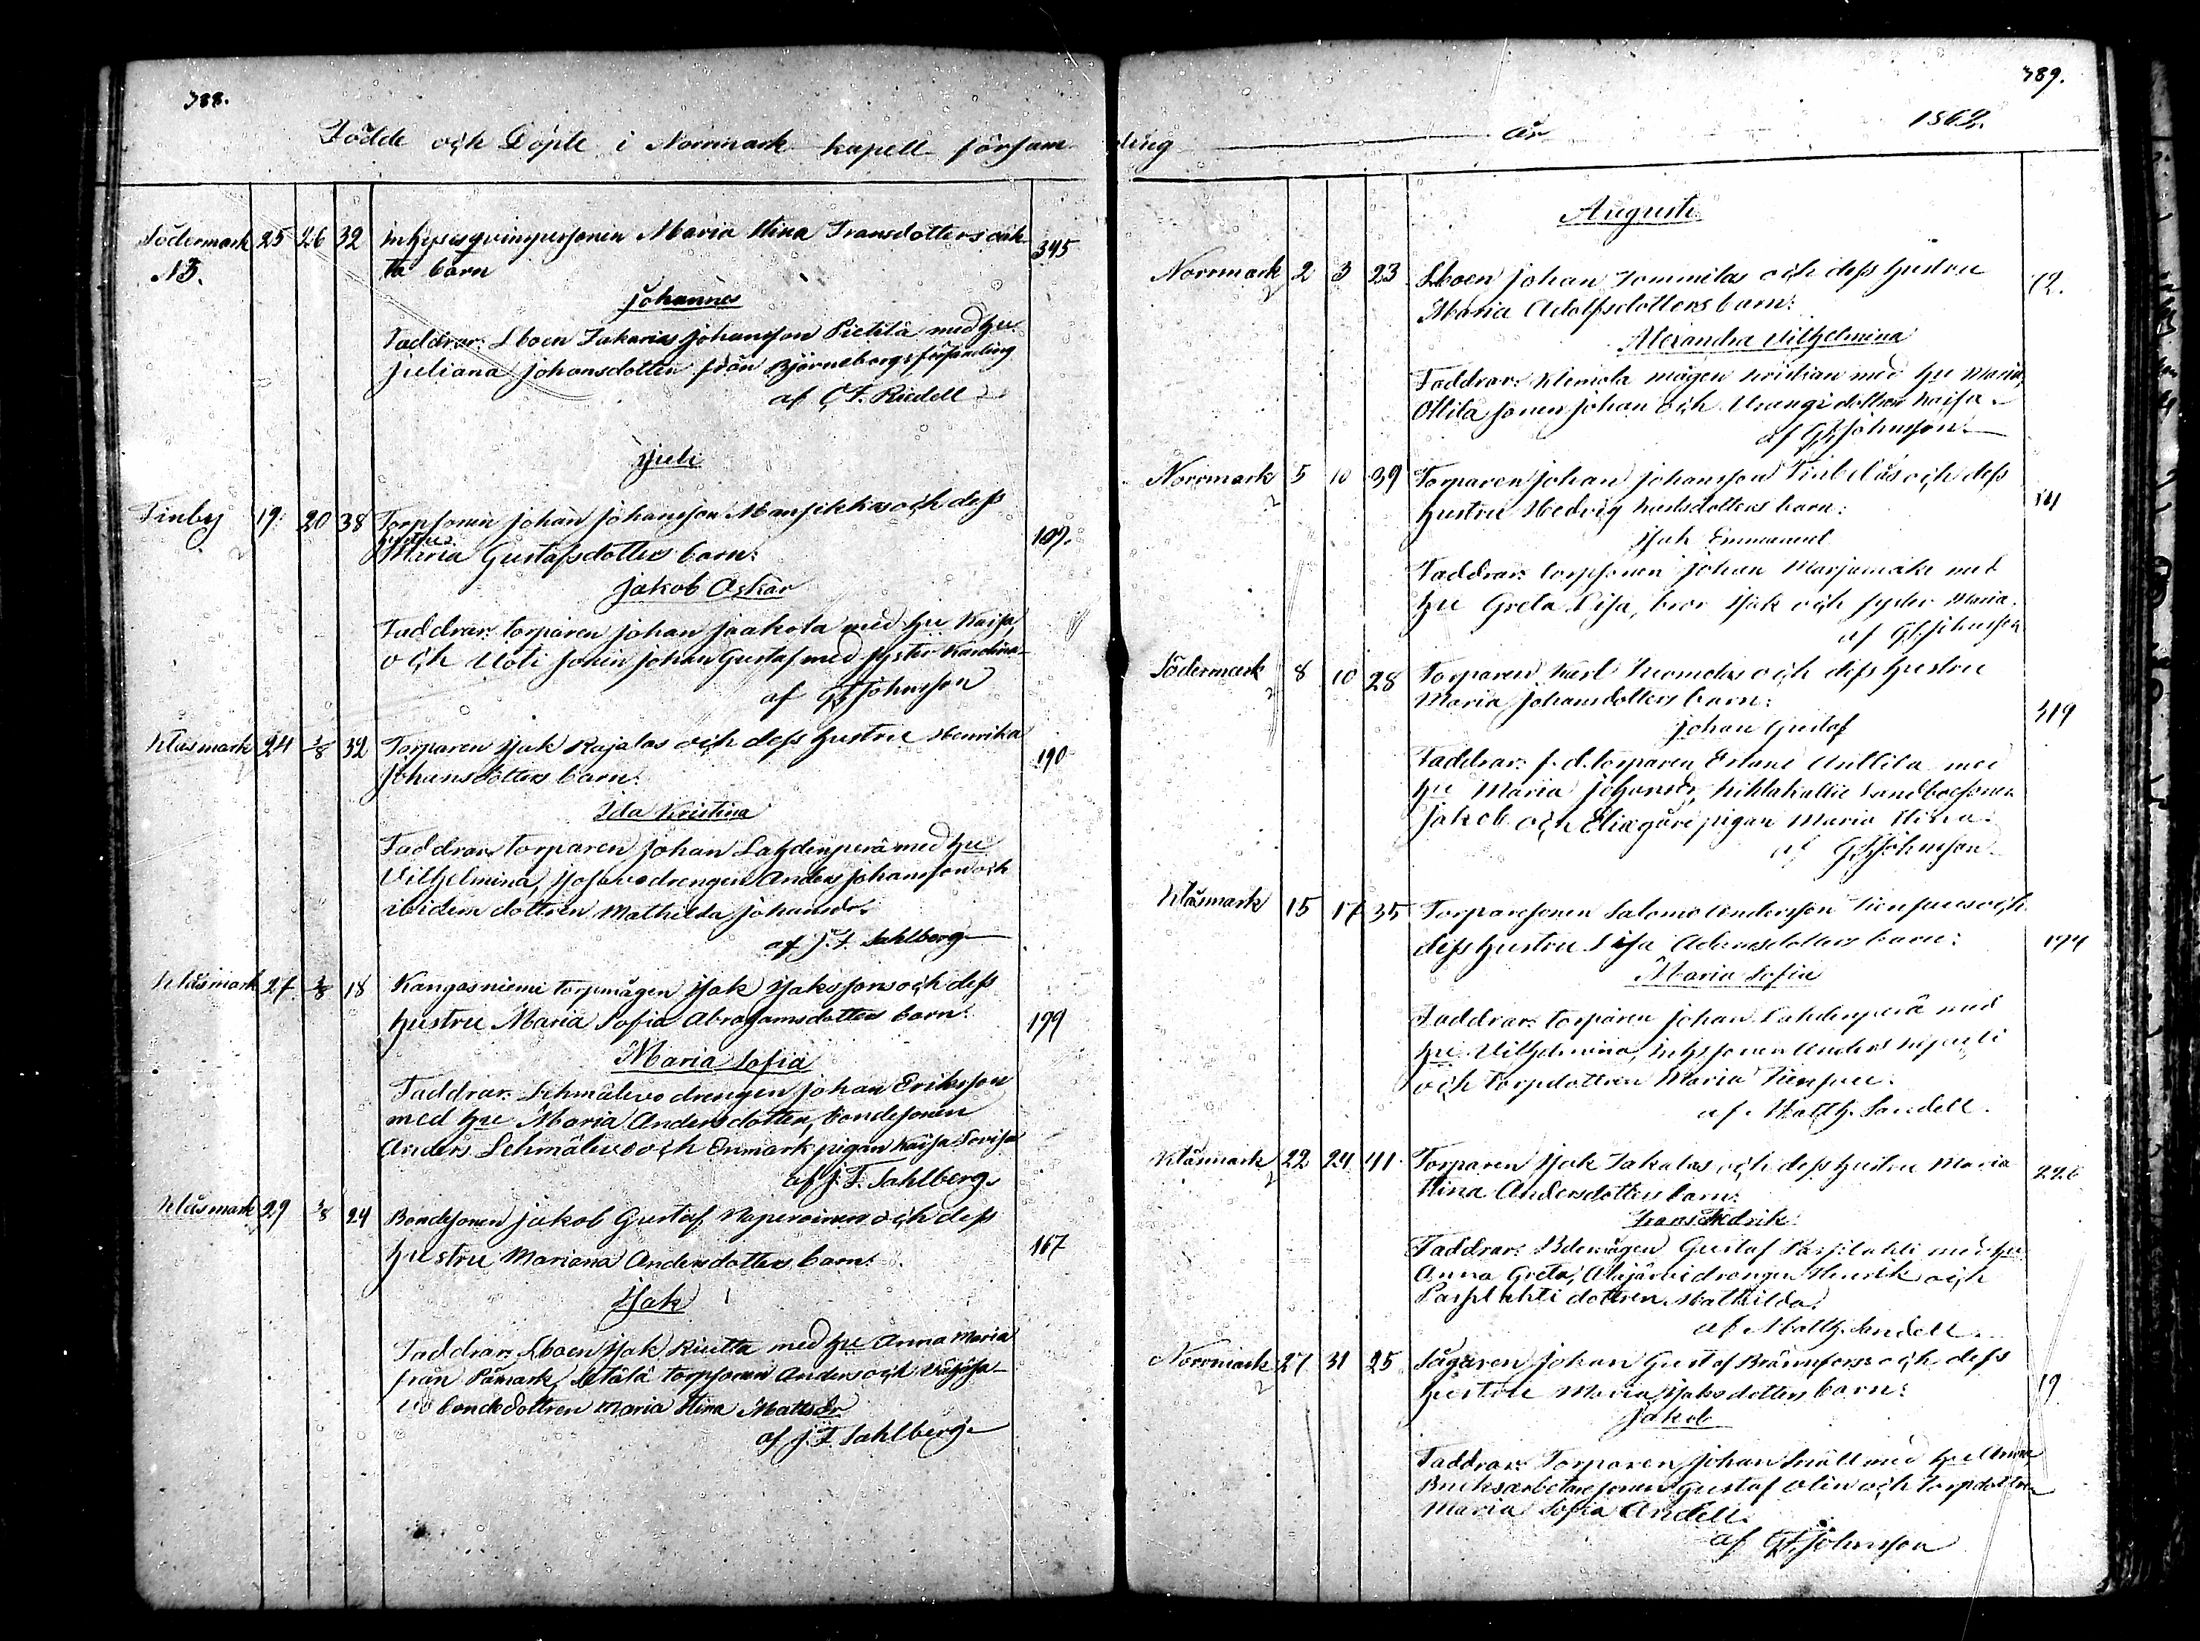 388.
Födde och Döpte i Norrmark kapell försam
Södermark 25 26 32 Inhysesqvinspersonen Maria Stina Fransdotters oäk-
N 3. ta barn 345
Johannes
Faddrar: Lboen Zakarias Johansson Pietilä med hu
Juliana Johansdotter från Björneborgs församling
af C F. Riedell
Juli
Finby 19. 20 38 Torpsonen Johan Johansson Mansikkas och dess
hustru
Maria Gustafsdotters barn: 109.
Jakob Oskar
Faddrar: torparen Johan Jaakola med hu Kaisa,
och Uoti sonen Johan Gustaf med syster Karolina
af G. Johnsson
Klåsmark 24 3/8 32 Torparen Isak Rajalas och dess hustru Henrika
Johansdotters barn: 190
Ida Kristina
Faddrar: torparen Johan Lahdenperä med hu
Vilhelmina, drengen Anders Johansson och
ibidem dottren Mathilda Johansdr.
af J. F. Sahlberg
Klåsmark 27 3/8 18 Kangasniemi torpmågen Isak Isaksson och dess
hustru Maria Sofia Abrahamsdotters barn: 199
Maria Sofia
Faddrar: drengen Johan Eriksson
med hu Maria Andersdotter, bondesonen
Anders och Enmark pigan Kaisa Lovisa
af J. F. Sahlberg
Klåsmark 29 3/8 24 Bondesonen Jakob Gustaf och dess
hustru Mariana Andersdotters barn: 167
Isak
Faddrar: Lboen Isak Riutta med hu Anna Maria
från Påmark, torpsonen Anders och
bondedottren Maria Stina Mattsdr
af J. F. Sahlberg
389.
ling år 1862.
Augusti
Norrmark 2 3 23 Lboen Johan Tommilas och dess hustru
Maria Adolfsdotters barn: 12.
Alexandra Vilhelmina
Faddrar: Klemola mågen med hu Maria,
Ottila sonen Johan och dottren Kaisa.
af G. Johnsson
Norrmark 5 10 39 Torparen Johan Johansson och dess
hustru Hedvig Karlsdotters barn:
Isak Emmanuel
Faddrar: torpsonen Johan Marjamäki med
hu Greta Lisa, bror Isak och syster Maria.
af G. Johnsson
Södermark 8 10 28 Torparen Karl Tuomelas och dess hustru
Maria Johansdotters barn: 319
Johan Gustaf
Faddrar: f. d. torparen Erland Anttila med
hu Maria Johansdr, Landboesonen
Jakob och pigan Maria Stina.
af G. Johnsson
Klåsmark 15 17 35 Torparesonen Salomo Andersson och
dess hustru Lisa Adamsdotters barn: 174
Maria Sofia
Faddrar: torparen Johan Lahdenperä med
hu Vilhelmina, Anders
och torpdottren Maria
af Matth. Sandell.
Klåsmark 22 24 41 Torparen Isak och dess hustru Maria
Stina Andersdotters barn: 226
Frans Fredrik
Faddrar: Bdemågen Gustaf med hu
Anna Greta, Alajärvi drengen Henrik och
dottren Mathilda.
af Matth. Sandell.
Norrmark 27 31 25 Sågaren Johan Gustaf Brännfors och dess
hustru Maria Isaksdotters barn: 19.
Jakob
Faddrar: Torparen Johan Snäll med hu Anna
Bruksarbetaresonen Gustaf Olin och torpdottren
Maria Sofia Andell.
af G. Johnsson